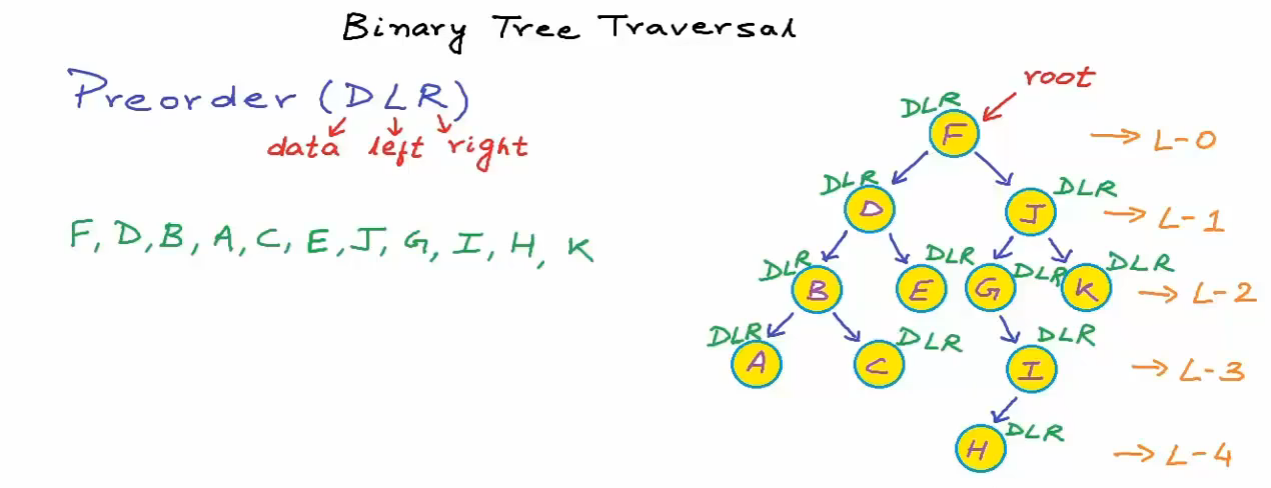 Binary Tree Traversal
Preorder (DLR)
data left right
F, D, B, A, C, E, J, G, I, H, K
root
DLR
F
→ L-0
DLR
D
DLR
J
→ L-1
DLR
B
DLR
E
G
DLR
K
DLR
→ L-2
DLR
A
DLR
C
DLR
I
→ L-3
H
DLR
→ L-4